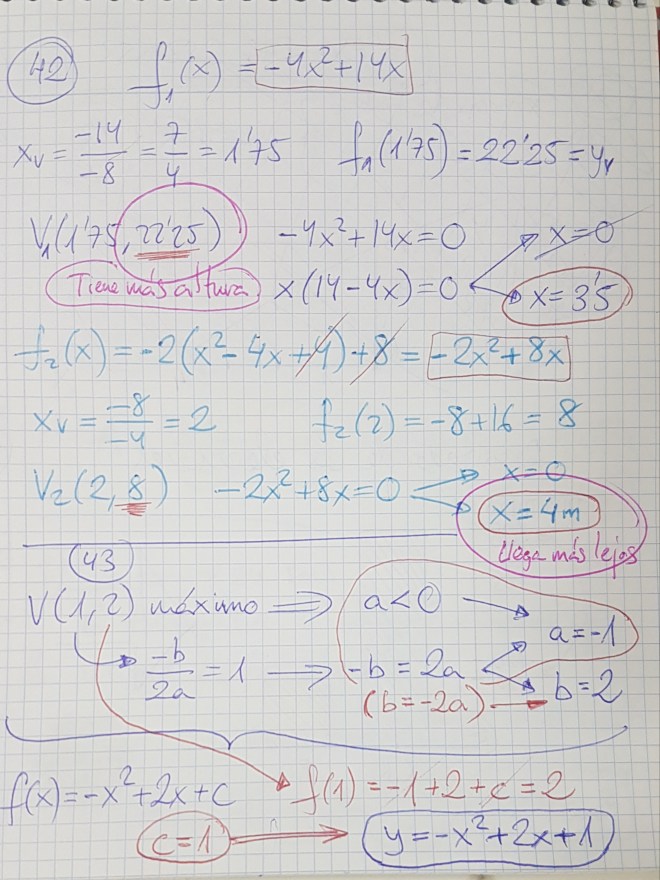 42 f₁(x) = -4x²+14x
xv = -14/-8 = 7/4 = 1'75 f₁(1'75) = 22'25 = yv
V₁(1'75, 22'25) -4x²+14x=0 x=0
Tiene más altura x(14-4x)=0 x=3'5
f₂(x) = -2(x²-4x+4)+8 = -2x²+8x
xv = -8/-4 = 2 f₂(2) = -8+16 = 8
V₂(2, 8) -2x²+8x=0 x=0
x=4m
llega más lejos
43
V(1,2) máximo ⟹ a<0 a=-1
-b/2a = 1 ⟶ -b = 2a b=2
(b=-2a)
f(x)=-x²+2x+c f(1)=-1+2+c=2
c=1 y=-x²+2x+1